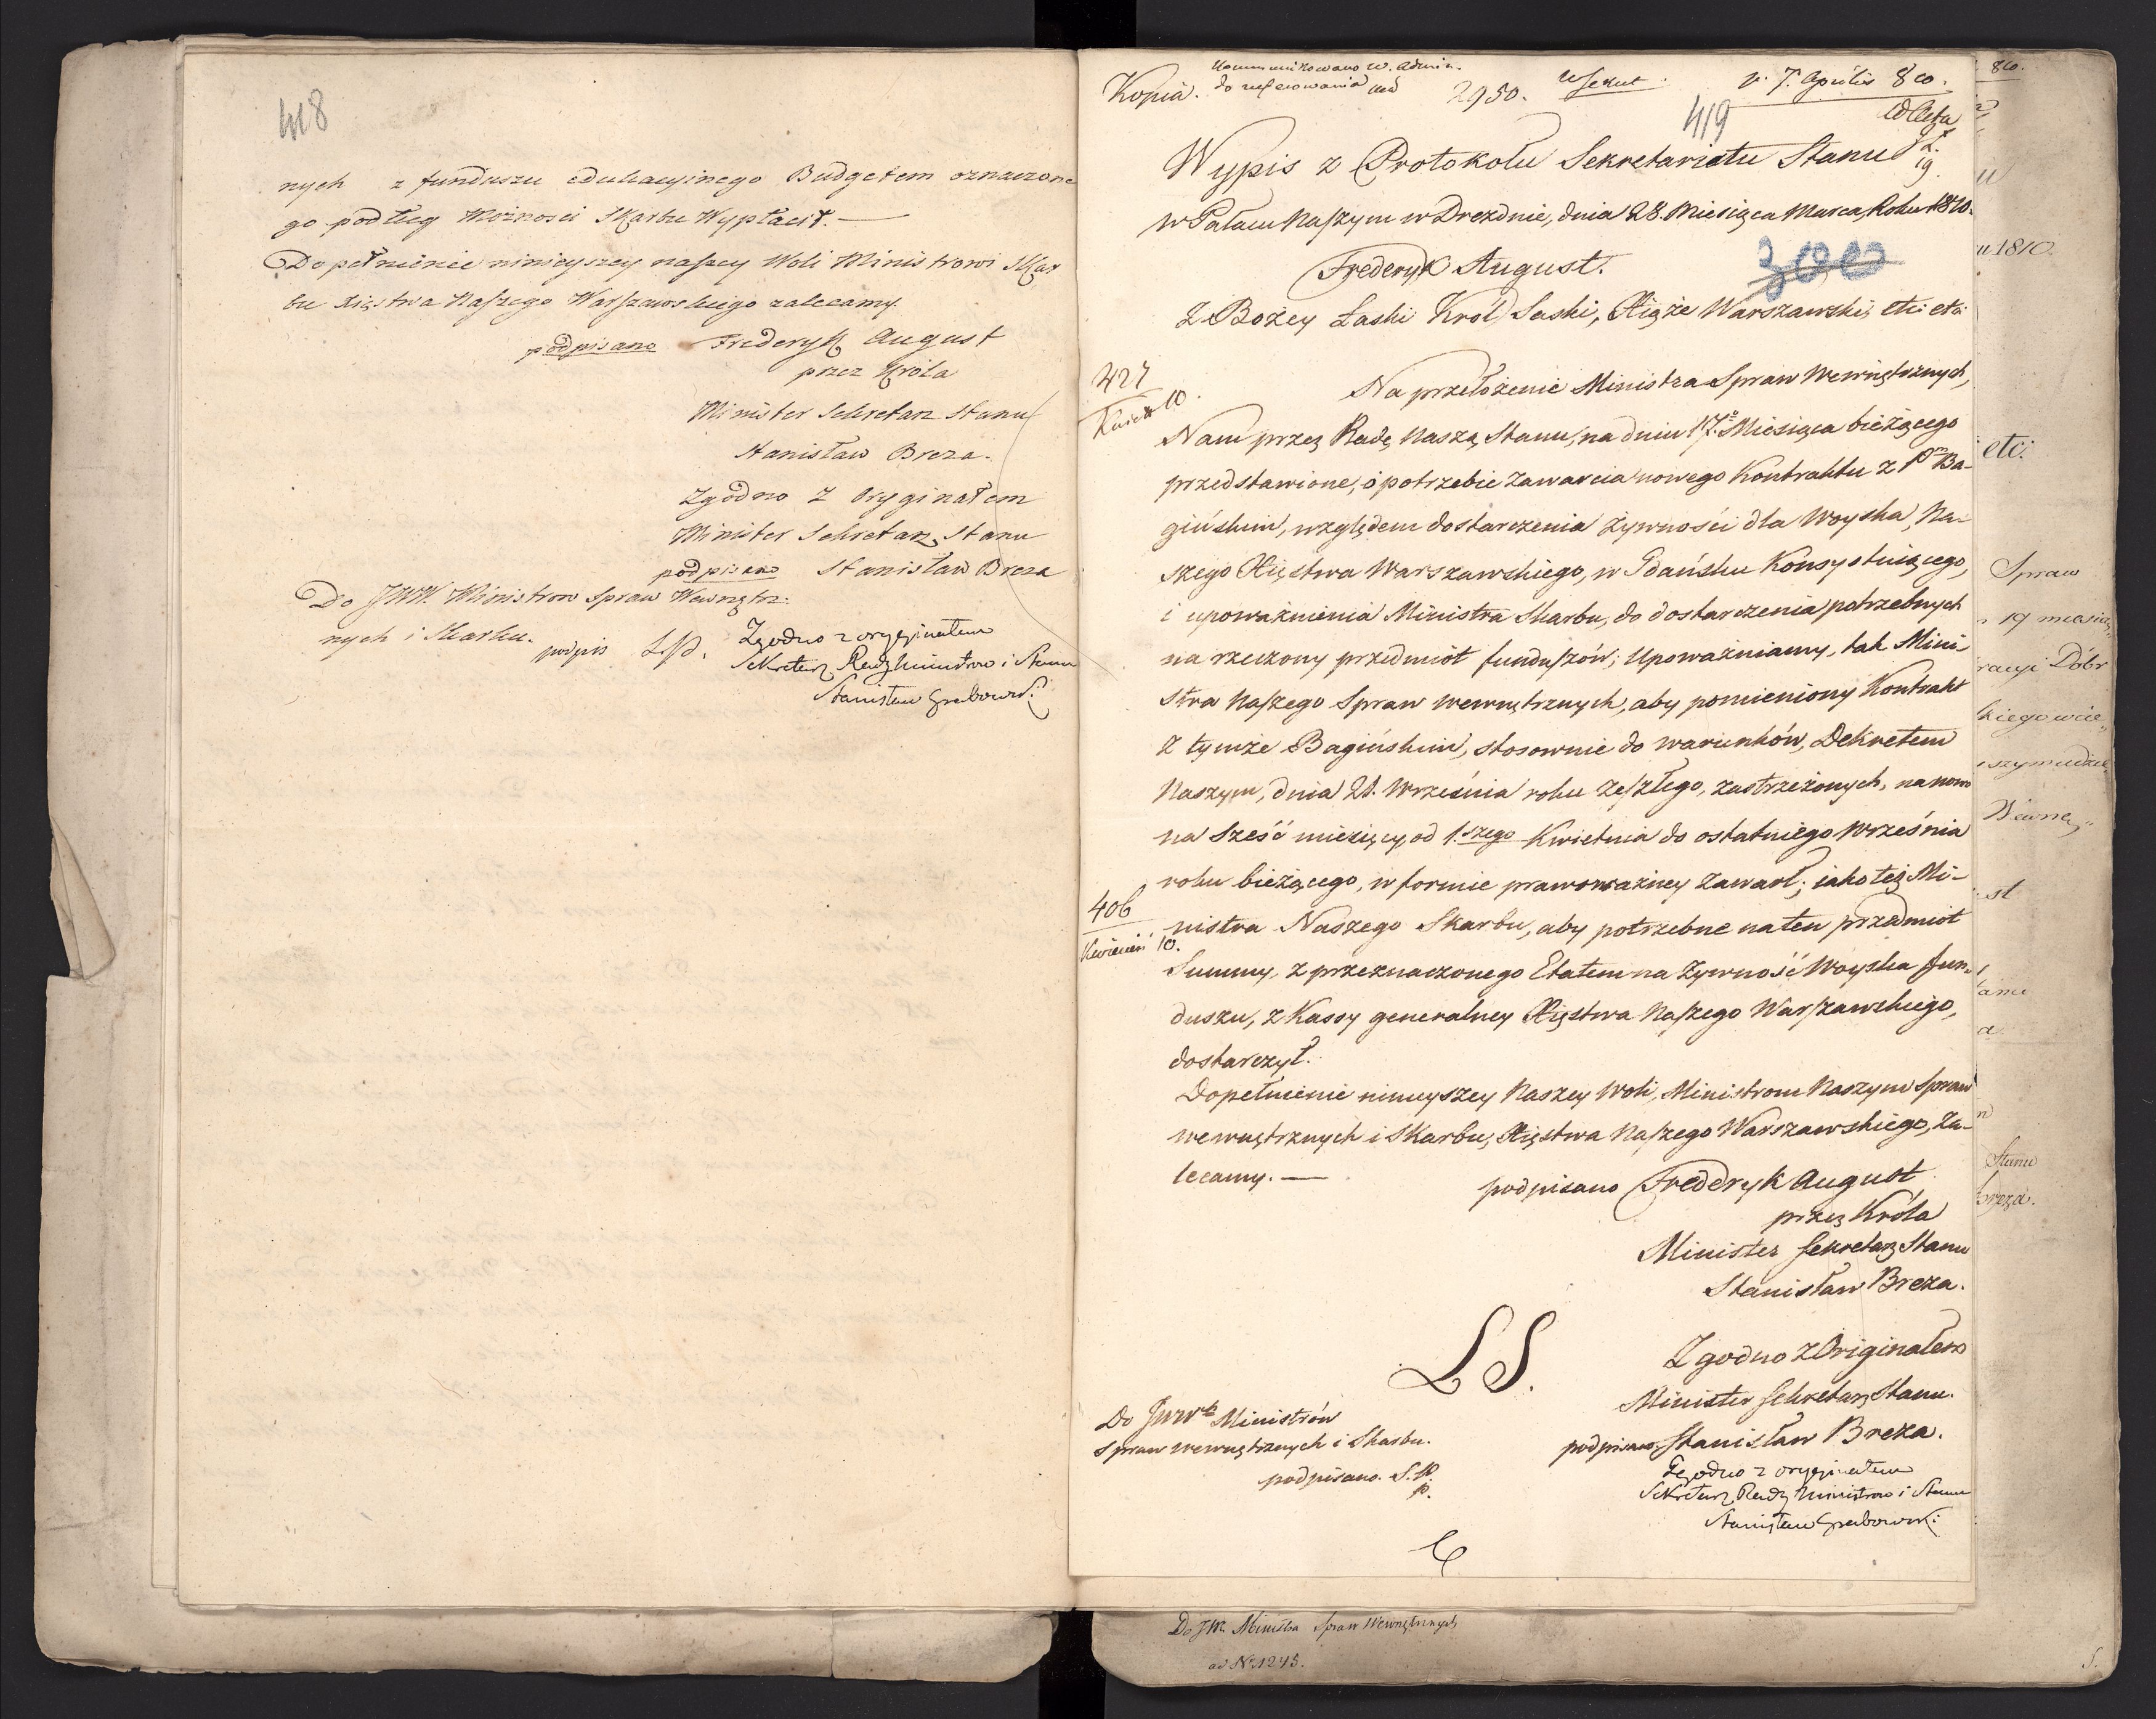 418
nych z funduszu edukacyinego Budgetem oznaczone
go podług Możnosci Skarbu Wypłacił. —
Dopełnienie ninieyszey naszey Woli Ministrowi Skar
bu Xięstwa Naszego Warszawskiego zalecamy.
podpisano Frederyk August
przez Króla
Minister Sekretarz Stanu
Stanisław Breza.
Zgodno z Oryginałem
Minister Sekretarz Stanu
podpisano Stanisław Breza
Do JWW. Ministrow Spraw Wewnętrz-
nych i Skarbu.
podpis
Zgodno z oryginałem
Sekretarz Rady Ministrow i Stanu
Stanisław Grabowski
Kommunikowano W. Admin.
Kopia. do referowania
2950.
7. Aprilis 810.
419
ad Acta
Wypis z Protokołu Sekretariatu Stanu
w Pałacu Naszym w Dreznie, dnia 28. Miesiąca Marca, Roku 1810.
Frederyk August.
Z Bożey Łaski Król Saski, Xiąże Warszawski, etc: etc:
427
10.
Na przełożenie Ministra Spraw Wewnętrznych,
Nam przez Radę Naszą Stanu, na dniu 17. Miesiąca bieżącego
przedstawione, o potrzebie zawarcia nowego Kontraktu z Pm Ba-
gińskim, względem dostarczenia żywności dla Woyska Na-
szego Xięstwa Warszawskiego, w Gdańsku Konsystuiącego,
i upoważnienia Ministra Skarbu, do dostarczenia potrzebnych
na rzeczony przedmiot funduszów; Upoważniamy, tak Mini-
stra Naszego Spraw wewnętrznych, aby pomieniony Kontrakt
z tymże Bagińskim, stosownie do warunków, Dekretem
Naszym, dnia 21. Września roku zeszłego, zastrzeżonych, na nowo
na sześć miesięcy od 1.szego Kwietnia do ostatniego Września
roku bieżącego, w formie prawoważney zawarł; iako też Mi-
406
Kwiecień 10.
nistra Naszego Skarbu, aby potrzebne na ten przedmiot
Summy, z przeznaczonego Etatem na żywność Woyska fun-
duszu, z Kassy generalney Xięstwa Naszego Warszawskiego,
dostarczył.
Dopełnienie ninieyszey Naszey Woli, Ministrom Naszym Spraw
wewnętrznych i Skarbu, Xięstwa Naszego Warszawskiego, Za-
lecamy. —
podpisano Frederyk August
przez Króla
Minister Sekretarz Stanu
Stanisław Breza.
LS.
Zgodno z Originałem
Minister Sekretarz Stanu.
podpisano, Stanisław Breza.
Do JWW Ministrów
Spraw wewnętrznych i Skarbu.
podpisano.
Zgodno z oryginałem
Sekretarz Rady Ministrow i Stanu
Stanisław Grabowski
Do JW. Ministra Spraw Wewnętrznych
ad No 1245.
810.
1810.
etc:
Spraw
19 miesią
racyi Dóbr
kiego wie
Wewnę
st
a
Stanu
Breza.